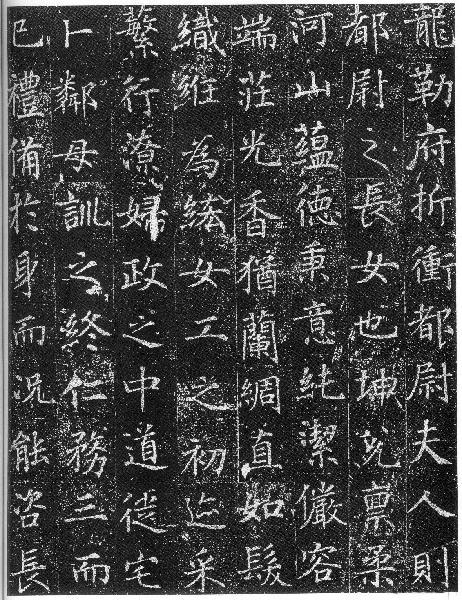 龍勒府折衝都尉夫人則
都尉之長女也坤兌稟柔
河山蘊德秉意純潔儼容
端莊光香猶蘭綢直如髮
織紝為綌女工之初采
蘩行潦婦政之中道徙宅
卜鄰母訓之終仁務三而
已禮備於身而況能咨長